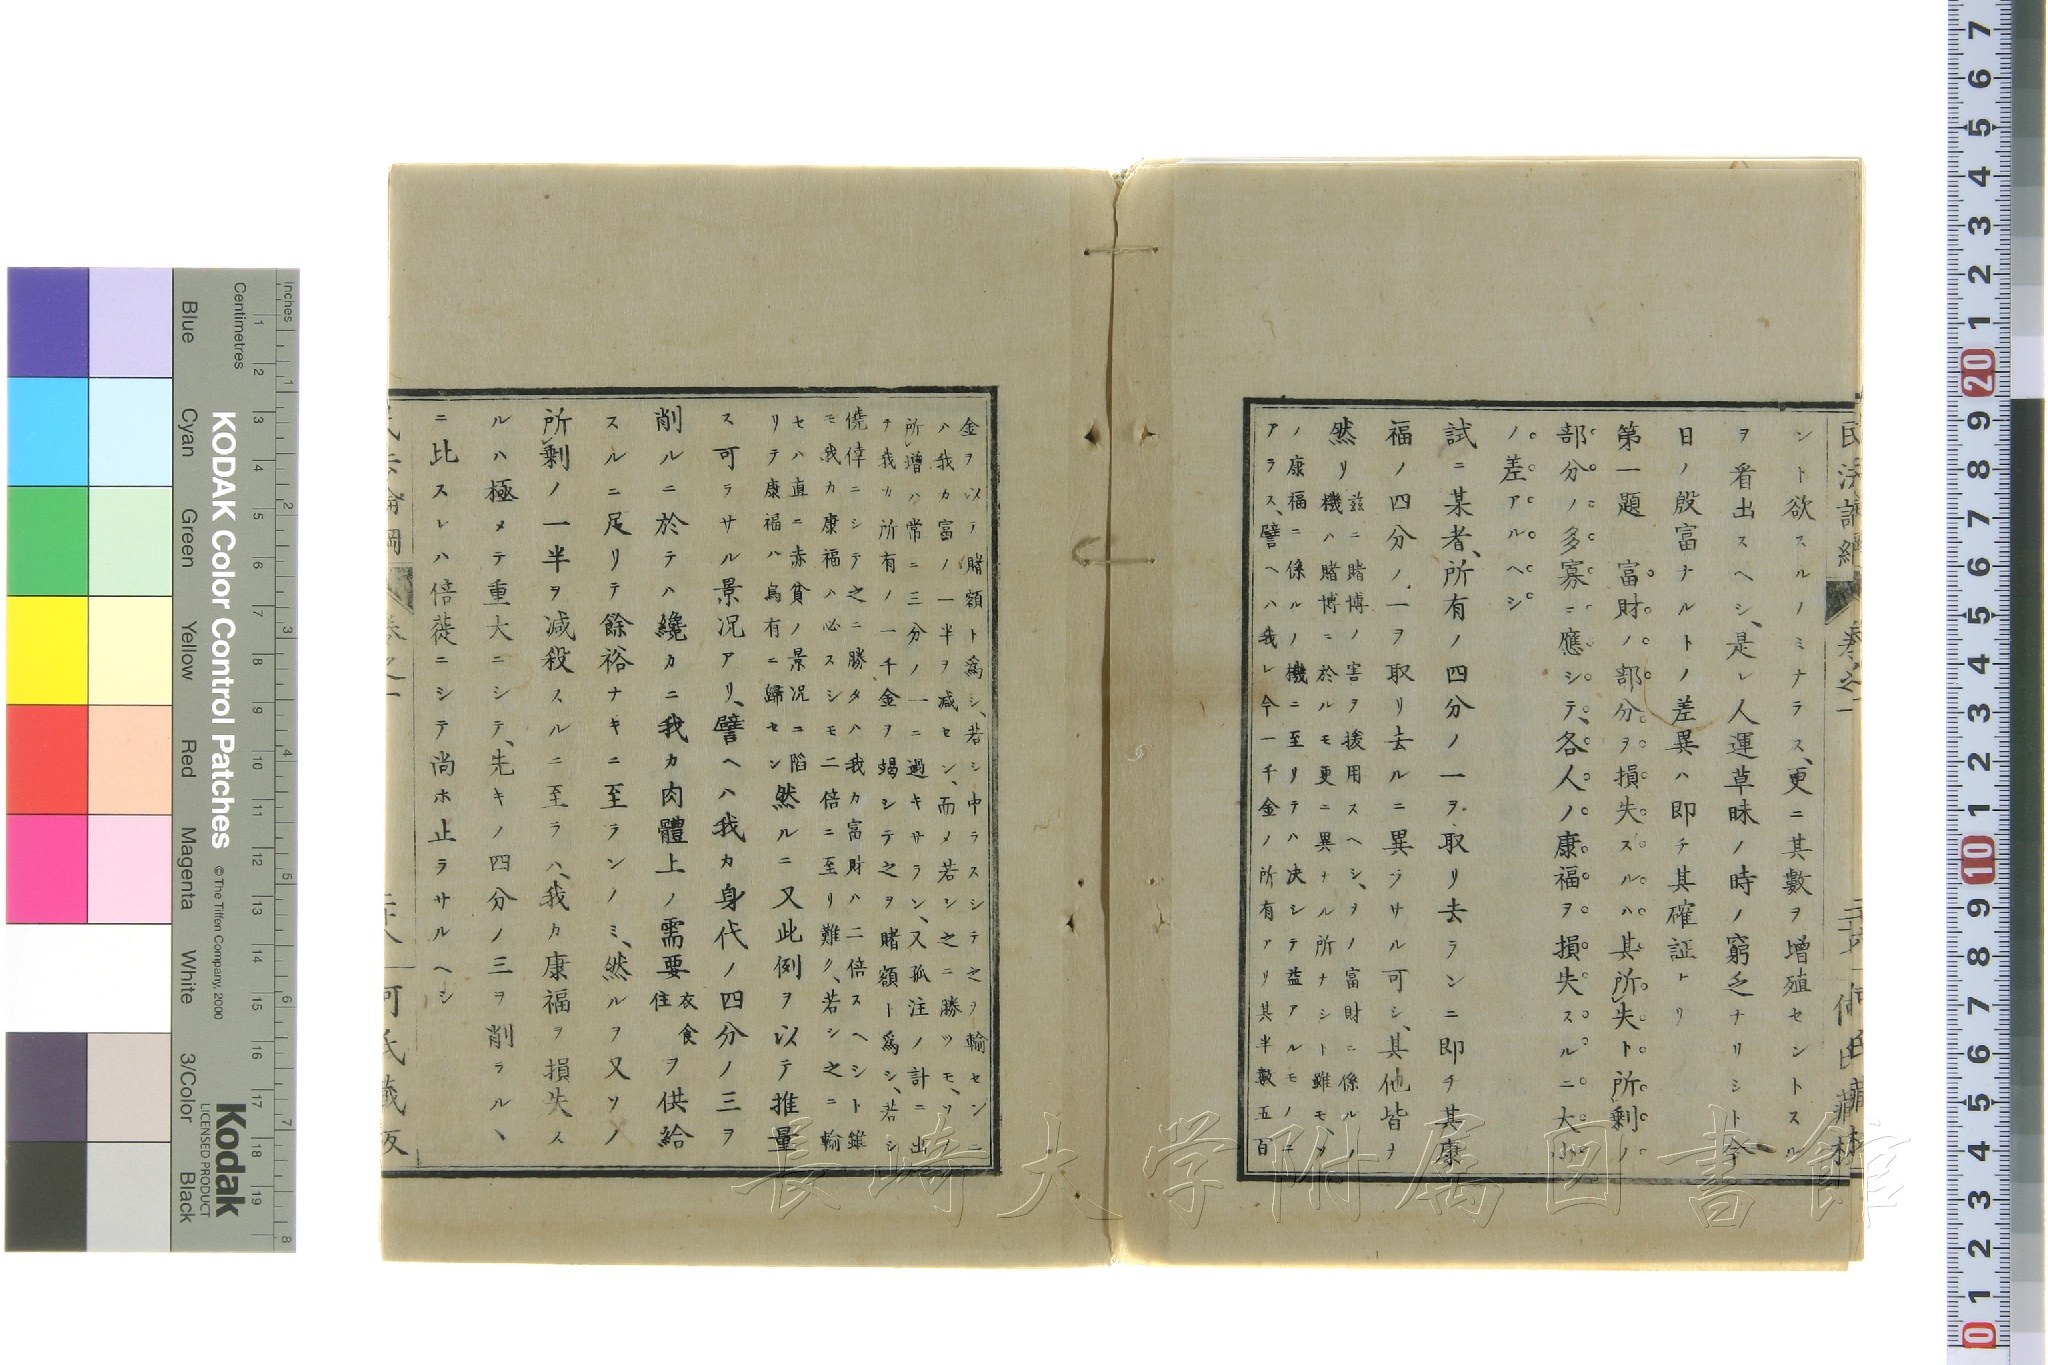 ント欲スルノミナラス、更ニ其數ヲ増殖セントスル
ヲ看出スヘシ、是レ人運草昧ノ時ノ窮乏ナリシト今
日ノ殷富ナルトノ差異ハ即チ其確証トリ
第一題　富財ノ部分ヲ損失スルハ其所失ト所剰ノ
部分ノ多寡ニ應シテ、各人ノ康福ヲ損失スルニ大小
ノ差アルヘシ
試ニ某者、所有ノ四分ノ一ヲ取リ去ランニ即チ其康
福ノ四分ノ一ヲ取リ去ルニ異ラサル可シ、其他皆ナ
然リ
茲ニ賭博ノ害ヲ援用スヘシ、ヲノ富財ニ係ルノ
機ハ賭博ニ於ルモ更ニ異ナル所ナシト雖モ、ソ
ノ康福ニ係ルノ機ニ至リテハ决シテ益アルモノニ
アラス、譬ヘハ我レ今一千金ノ所有アリ其半數五百
金ヲ以テ賭額ト爲シ、若シ中ラスシテ之ヲ輸センニ
ハ我カ富ノ一半ヲ减セン、而メ若シ之ニ勝ツモ、ソノ
所增ハ常ニ三分ノ一ニ過キサラン、又孤注ノ計ニ出
テ我カ所有ノ一千金ヲ竭シテ之ヲ賭額ト爲シ、若シ
僥倖ニシテ之ニ勝タハ我カ富財ハ二倍スヘシト雖
モ我カ康福ハ必スシモ二倍ニ至リ難ク、若シ之ニ輸
セハ直ニ赤貧ノ景况ニ陷
リテ康福ハ烏有ニ歸セン
然ルニ又此例ヲ以テ推量
ス可ラサル景况アリ、譬ヘハ我カ身代ノ四分ノ三ヲ
削ルニ於テハ纔カニ我カ肉體上ノ需要衣食住ヲ供給
スルニ足リテ餘裕ナキニ至ランノミ、然ルヲ又ソノ
所剰ノ一半ヲ减殺スルニ至ラハ、我カ康福ヲ損失ス
ルハ極メテ重大ニシテ、先キノ四分ノ三ヲ削ラル、
ニ比スレハ倍蓰ニシテ尚ホ止ラサルヘシ
長崎大学附属図書館
KODAK Color Control Patches
© The Tiffen Company, 2000
Kodak
LICENSED PRODUCT
Inches
Centimetres
Blue
Cyan
Green
Yellow
Red
Magenta
White
3/Color
Black